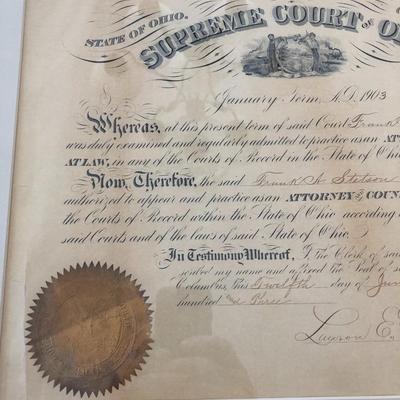 STATE OF OHIO.
SUPREME COURT OF O
January Term, A.D. 1903
Whereas, at this present term of said Court Frank
was duly examined and regularly admitted to practice as an AT
AT LAW, in any of the Courts of Record in the State of Ohio
Now, Therefore, the said Frank A. Stetson
authorized to appear and practice as an ATTORNEY and COUN
the Courts of Record within the State of Ohio according
said Courts and of the laws of said State of Ohio.
In Testimony Whereof, I, the Clerk of sai
scribed my name and affixed the Seal of s
Columbus, this Twelfth day of Jun
hundred and Three
Lawson E.